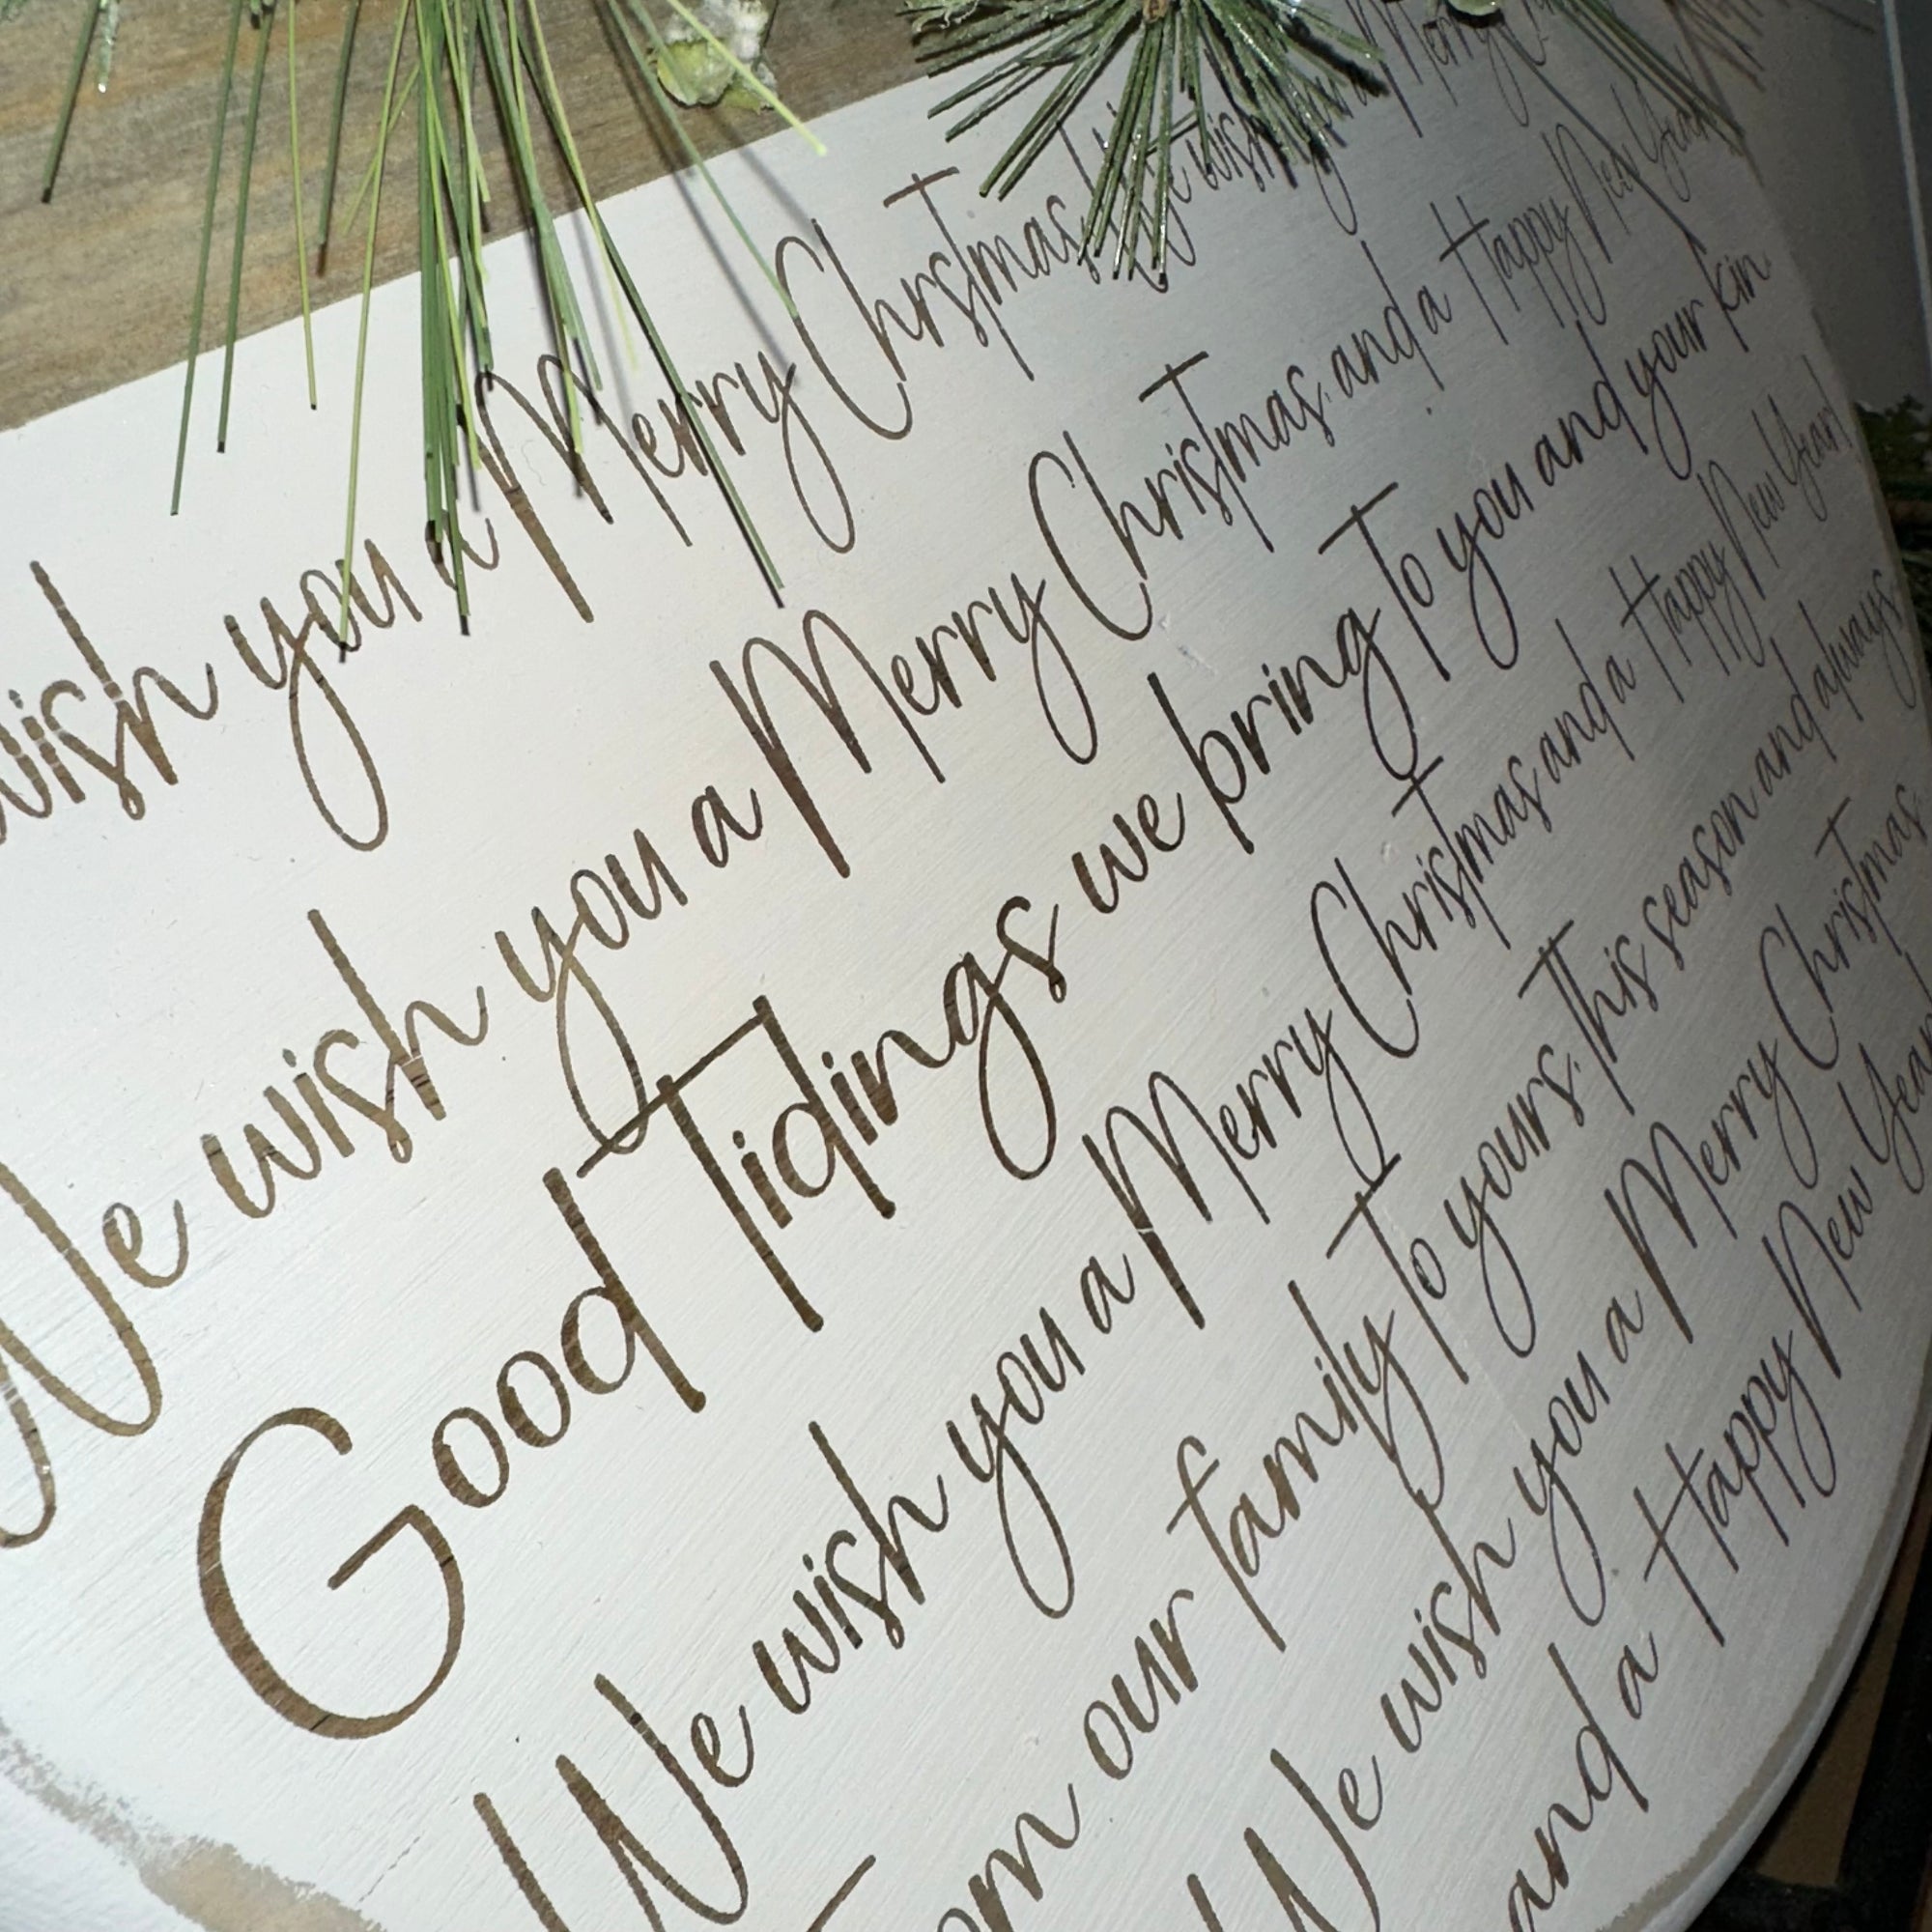 wish you a Merry Chrstmas, We wish you a Merry
We wish you a Merry Christmas, and a Happy New Year
Good Tidings we bring to you and your kin.
We wish you a Merry Christmas and a Happy New Year!
From our family to yours. this season and always
We wish you a Merry Christmas
and a Happy New Year